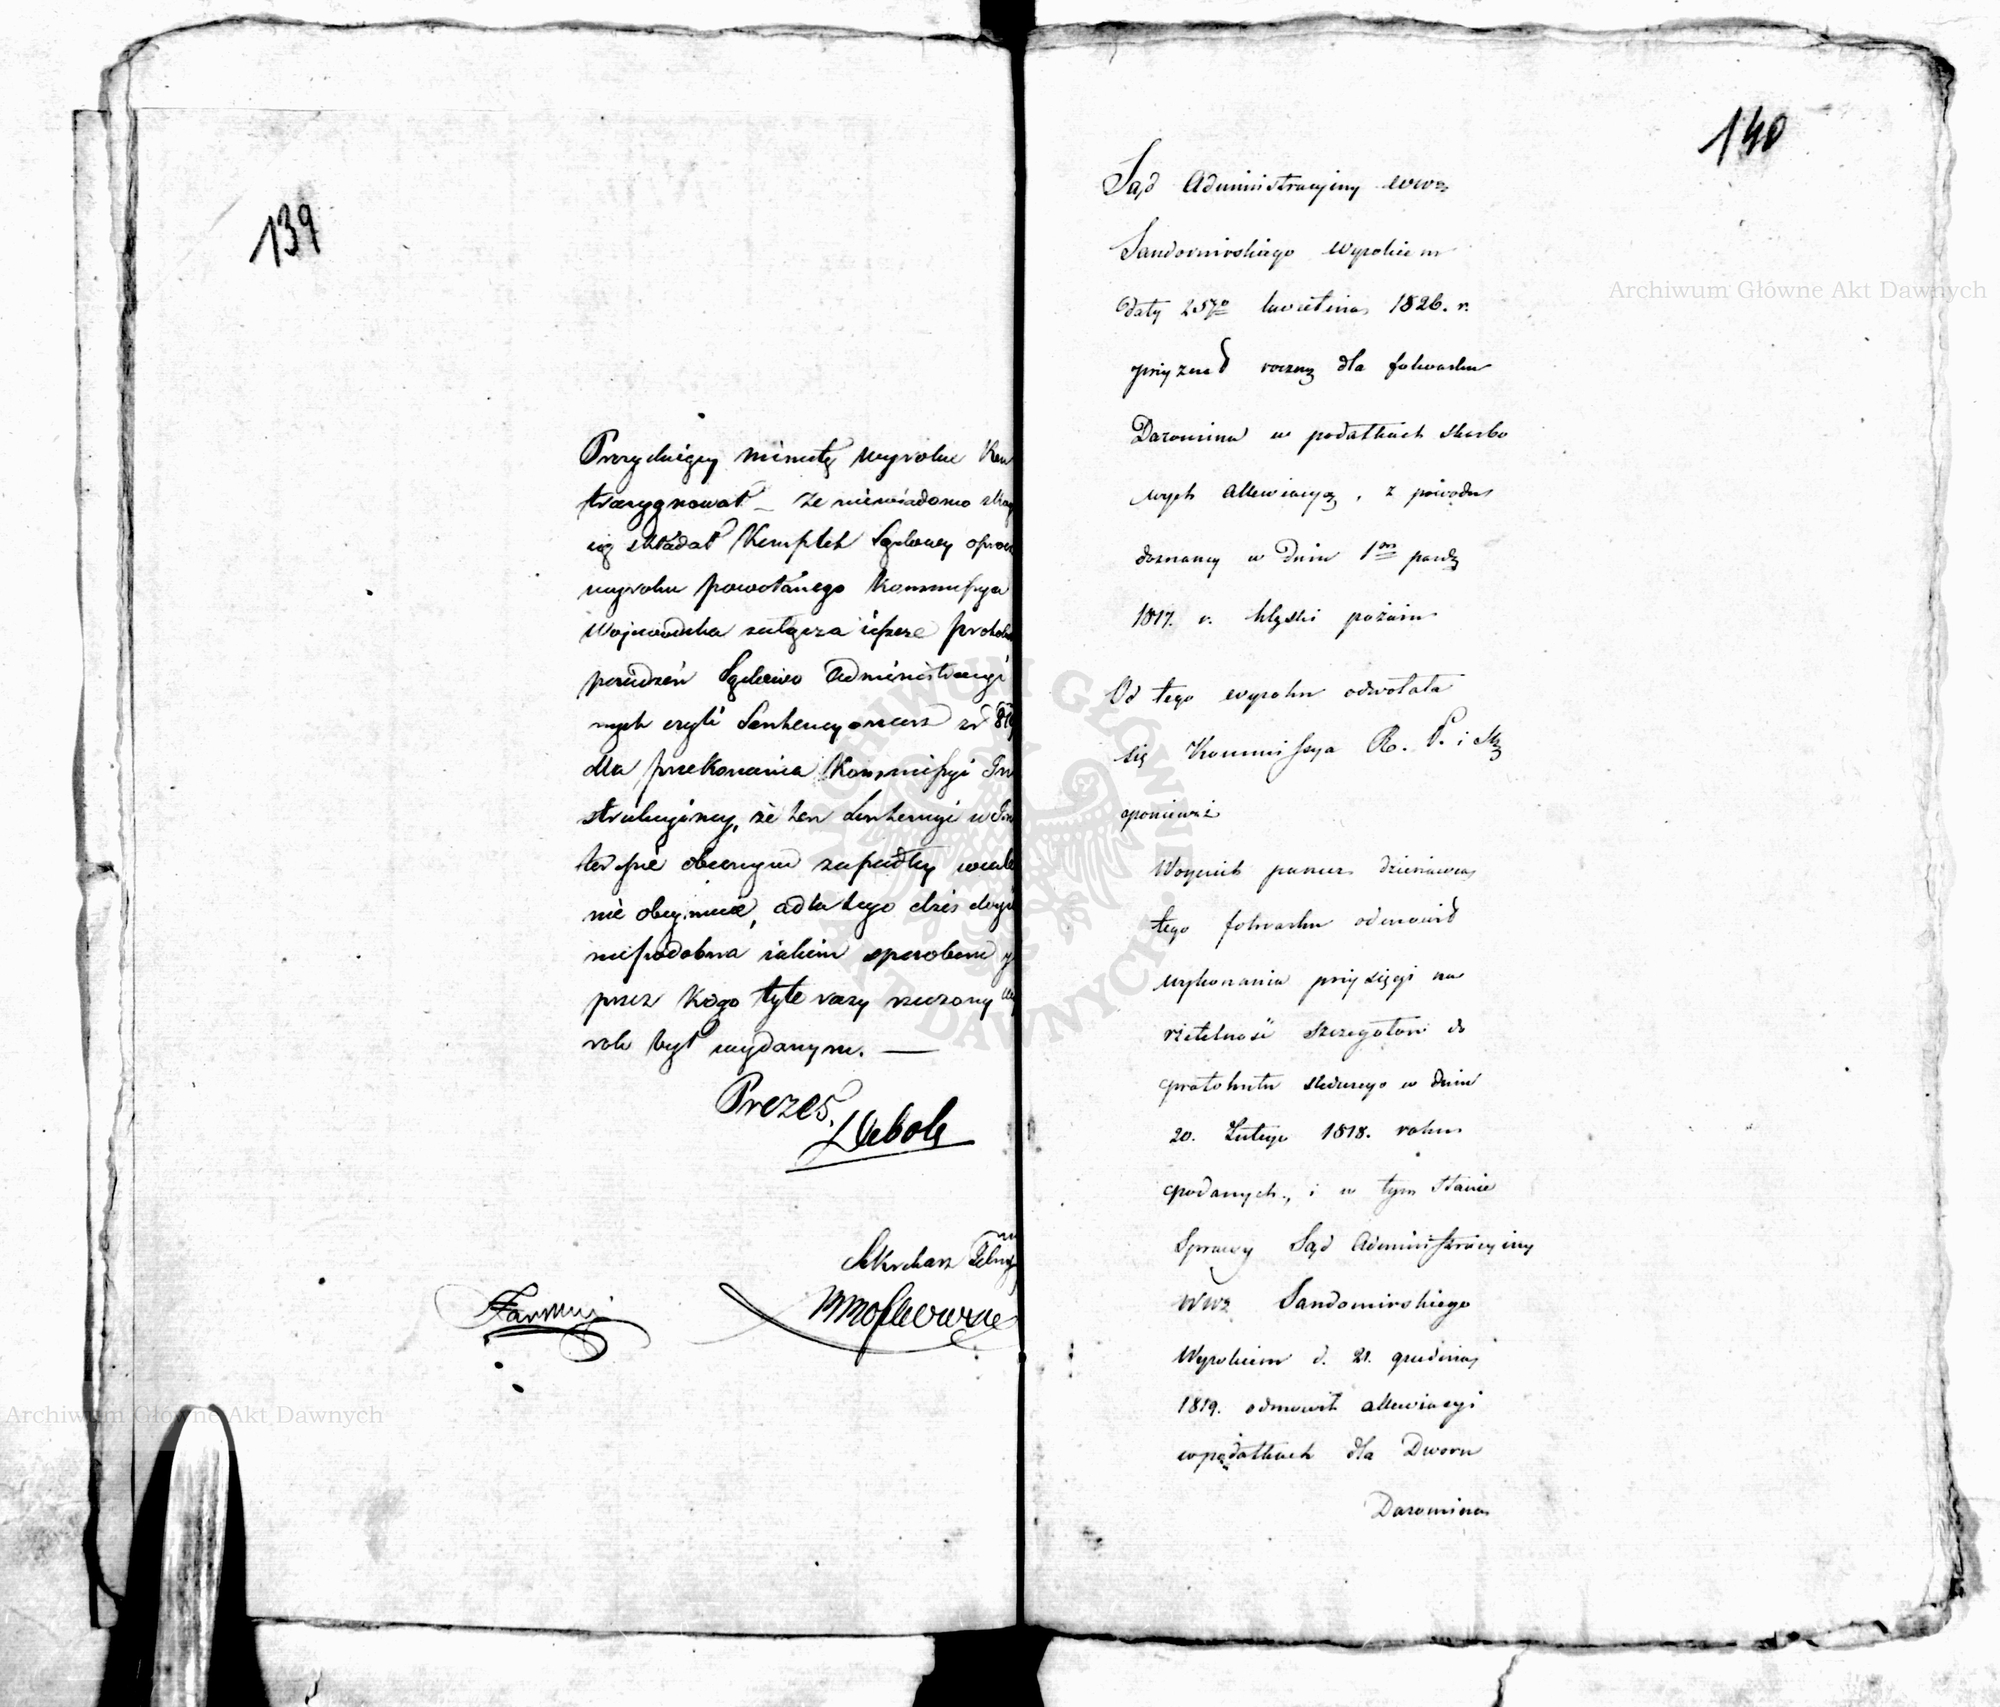 139
Prezyduiący minutę wyroku Kon
trasygnował _ że niewiadomo
się składał Komplet Sądowy
wyroku powołanego Kommissya
Woiewódzka załącza
posiedzeń Sądowo Administracyi
nych czyli Sentencyonarz
dla przekonania Kommissyi In
strukcyiney, że ten Sentencyi w
zapadłey wcale
nie obeymuie, a dla tego dziś
niepodobna iakim sposobem
przez Kogo tyle razy rzeczony wy
rok był wydanym. —
Prezes
Sekretarz
140
Sąd Administracyiny Wwa
Sandomirskiego wyrokiem
daty 25go kwietnia 1826. r.
przyznał roczną dla folwarku
Daromina w podatkach skarbo
wych allewiacyą, z powodu
doznaney w dniu 1m paźdz
1817. r. klęski pożaru
Od tego wyroku odwołała
się Kommissya R. P. i Sk
ponieważ
Woyciech dzierżawca
tego folwarku odmówił
wykonania przysięgi na
rzetelność szczegółów do
protokułu śledczego w dniu
20. Lutego 1818. roku
podanych, i w tym stanie
Sprawy Sąd Administracyiny
Wwa Sandomirskiego
Wyrokiem d. 21. grudnia
1819. odmówił allewiacyi
w podatkach dla Dworu
Daromina
Archiwum Główne Akt Dawnych
Archiwum Główne Akt Dawnych
ARCHIWUM GŁÓWNE AKT DAWNYCH